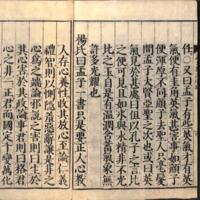 性○又曰孟子有些英氣才有英
氣便有圭角英氣甚害事如顏子
便渾厚不同顏子去聖人只毫髮
間孟子大賢亞聖之次也或曰英
氣見於甚處曰但以孔子之言比
之便可見且如冰與水精非不光
比之玉自是有溫潤含蓄氣象無
許多光耀也
楊氏曰孟子一書只是要正人心教
人存心養性收其放心至論仁義
禮智則以惻隱羞惡辭讓是非之
心爲之端論邪說之害則曰生於
其心害於其政論事君則曰格君
心之非一正君而國定千變萬化